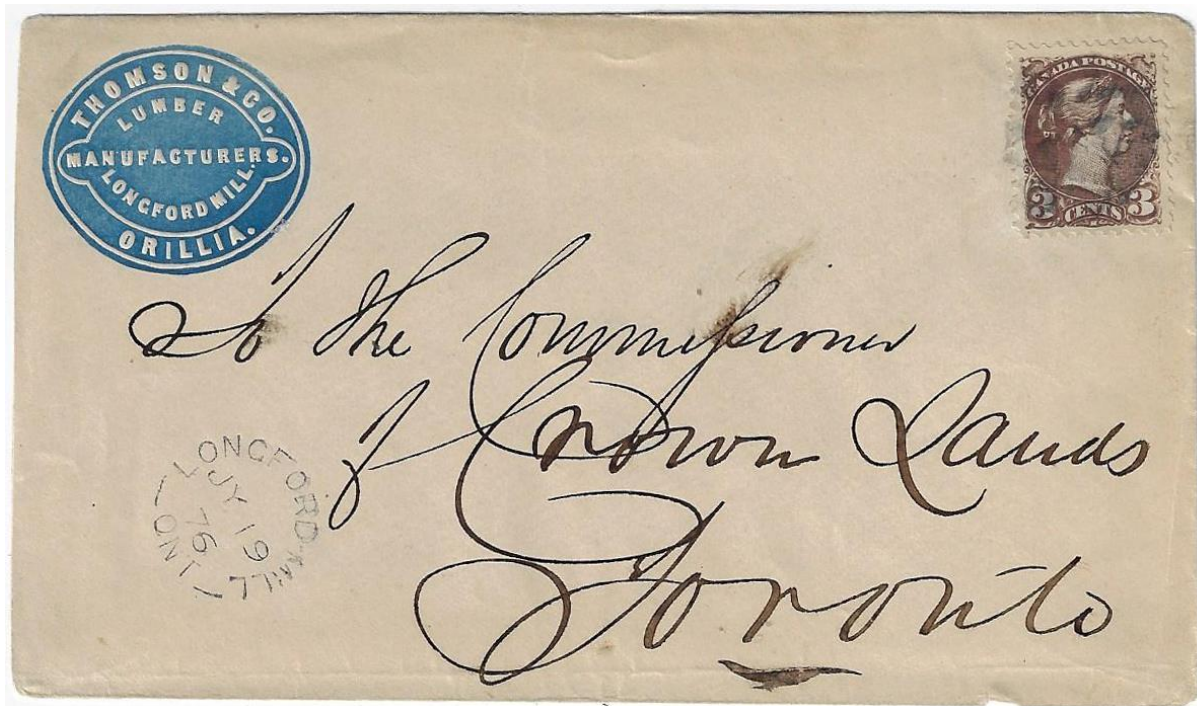 THOMSON & CO.
LUMBER
MANUFACTURERS.
LONGFORD MILL.
ORILLIA.
CANADA POSTAGE
3 CENTS 3
To the Commissioner
of Crown Lands
Toronto
LONGFORD-MILL
JY 19
76
ONT